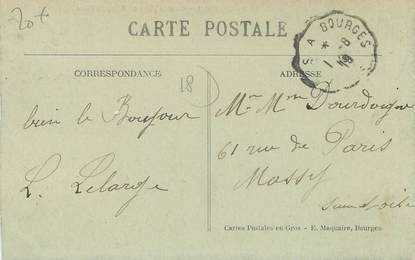 20+
CARTE POSTALE
S A BOURGES
* 8
1 19
CORRESPONDANCE
ADRESSE
18
bien le Bonjour
L. Lelarge
Mr Mme Dourdoigne
61 rue de Paris
Massy
Seine & Oise
Cartes Postales en Gros - E. Maquaire, Bourges.